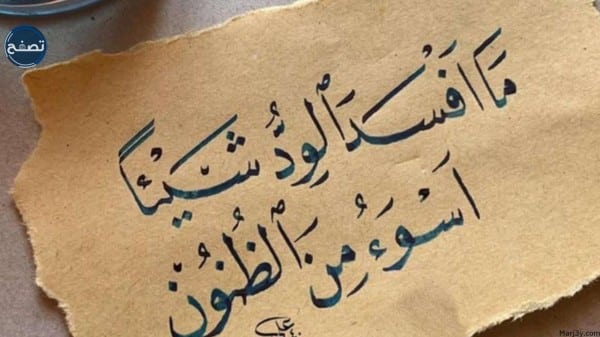 تصفح
مَا اَفْسَدَ ٱلوِدُّ شَيْئاً
اَسْوَءُ مِنَ ٱلظُنُونْ
علي
Marj3y.com